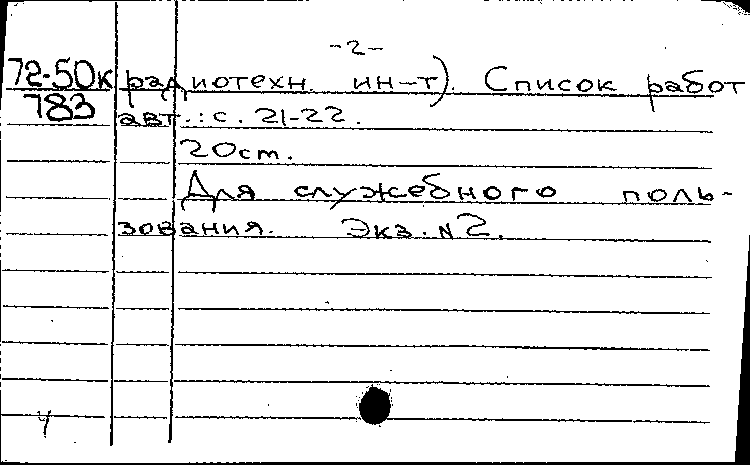 -2-
72-50к радиотехн. ин-т). Список работ
783 авт.: с. 21-22.
20см.
Для служебного поль-
зования. Экз. N2.
Ч